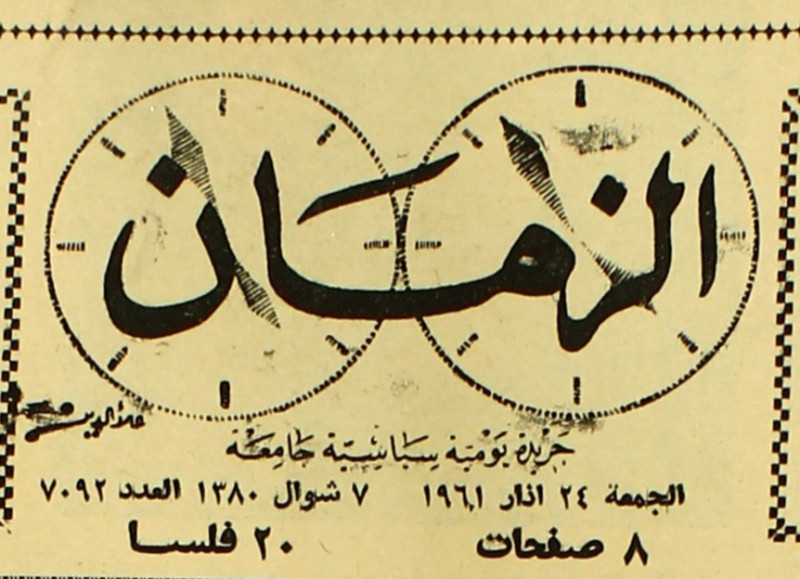 الزمان
علاء الدين
جريدة يومية سياسية جامعة
الجمعة ٢٤ اذار ١٩٦١ ٧ شوال ١٣٨٠ العدد ٧٠٩٢
٨ صفحات ٢٠ فلسا